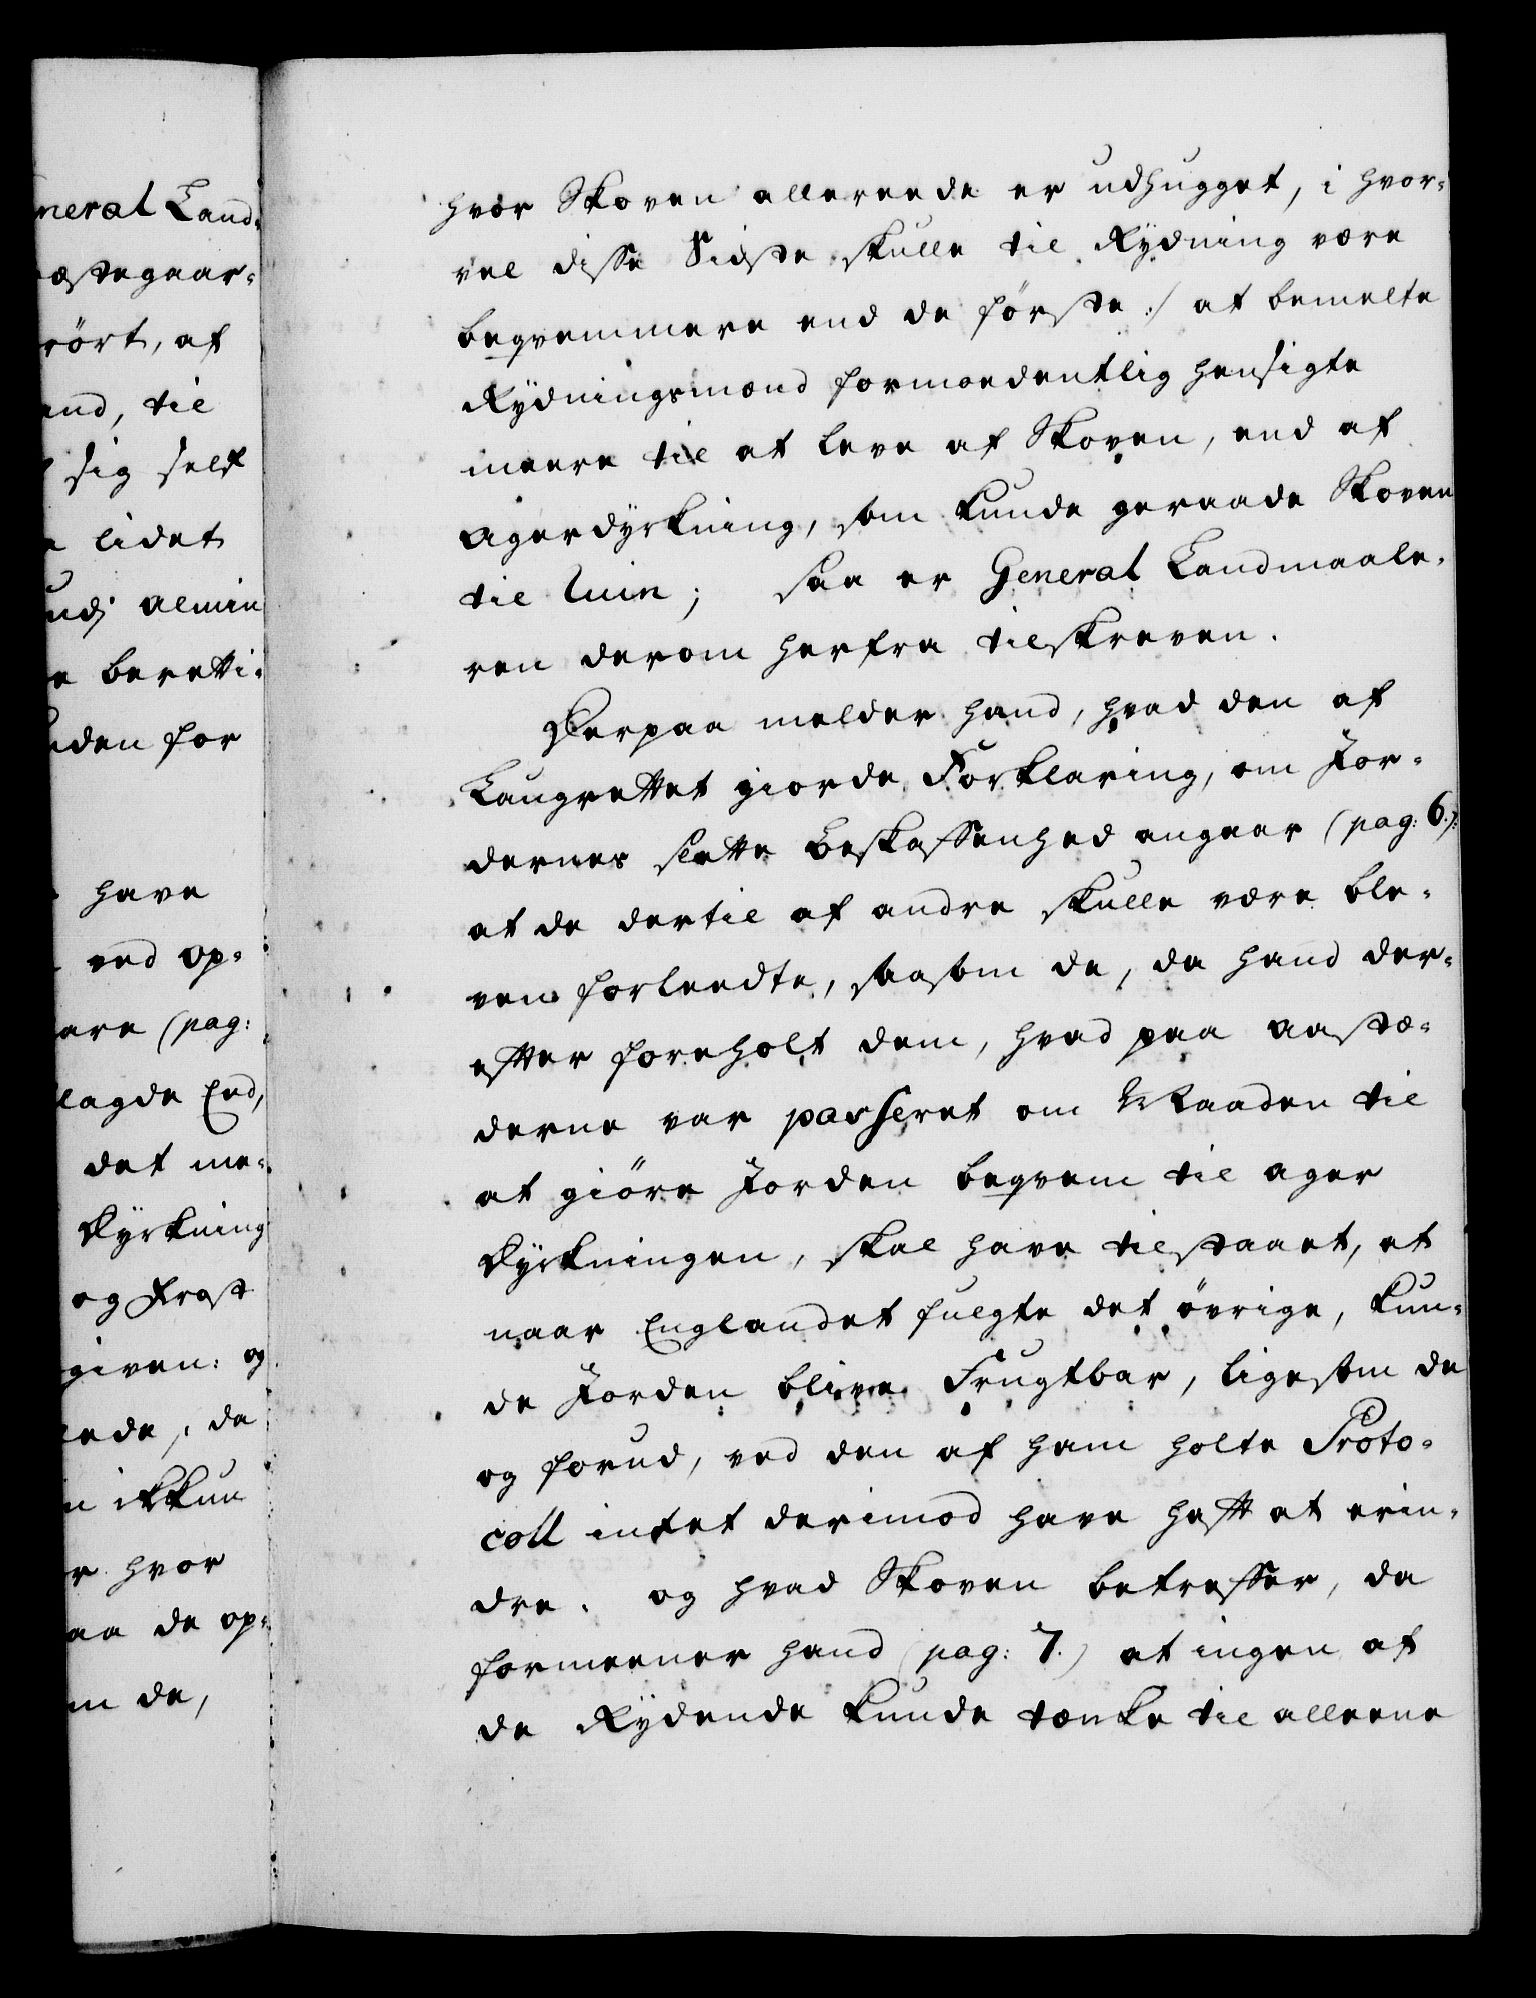 neral Land-
æstegaar-
rört, af
and, til
sig self
lidet
almin
beretti-
den for
have
ved op-
are (pag:
lagde End,
det me-
dyrkning
og Frost
given: og
ede, da
ikkun
hvor
aa de op-
m de,
hvor Skoven allereede er udhugget, i hvor-
vel disse Sidste skulle til Rydning være
beqvemmere end de første :/ at bemelte
Rydningsmænd formoedentlig hensigte
meere til at leve af Skoven, end af
Agerdyrkning, som kunde geraade Skoven
til Ruin; saa er General Landmaale-
ren derom herfra tilskreven.
Derpaa melder hand, hvad den af
Laugrettet giorde Forklaring, om Jor-
dernes slette Beskaffenhed angaar (pag: 6.):
at de dertil af andre skulle være ble-
ven forleedte, saasom de, da hand der-
efter foreholt dem, hvad paa aastæ-
derne var passeret om Maaden til
at giöre Jorden beqvem til ager
Dyrkningen, skal have tilstaaet, at
naar Englandet fulgte det övrige, kun-
de Jorden blive Frugtbar, ligesom de
og forud, ved den af ham holte Proto-
coll intet derimod have haft at erin-
dre. og hvad Skoven betreffer, da
formeener hand (pag: 7.) at ingen af
de Rydende kunde tænke til alleene